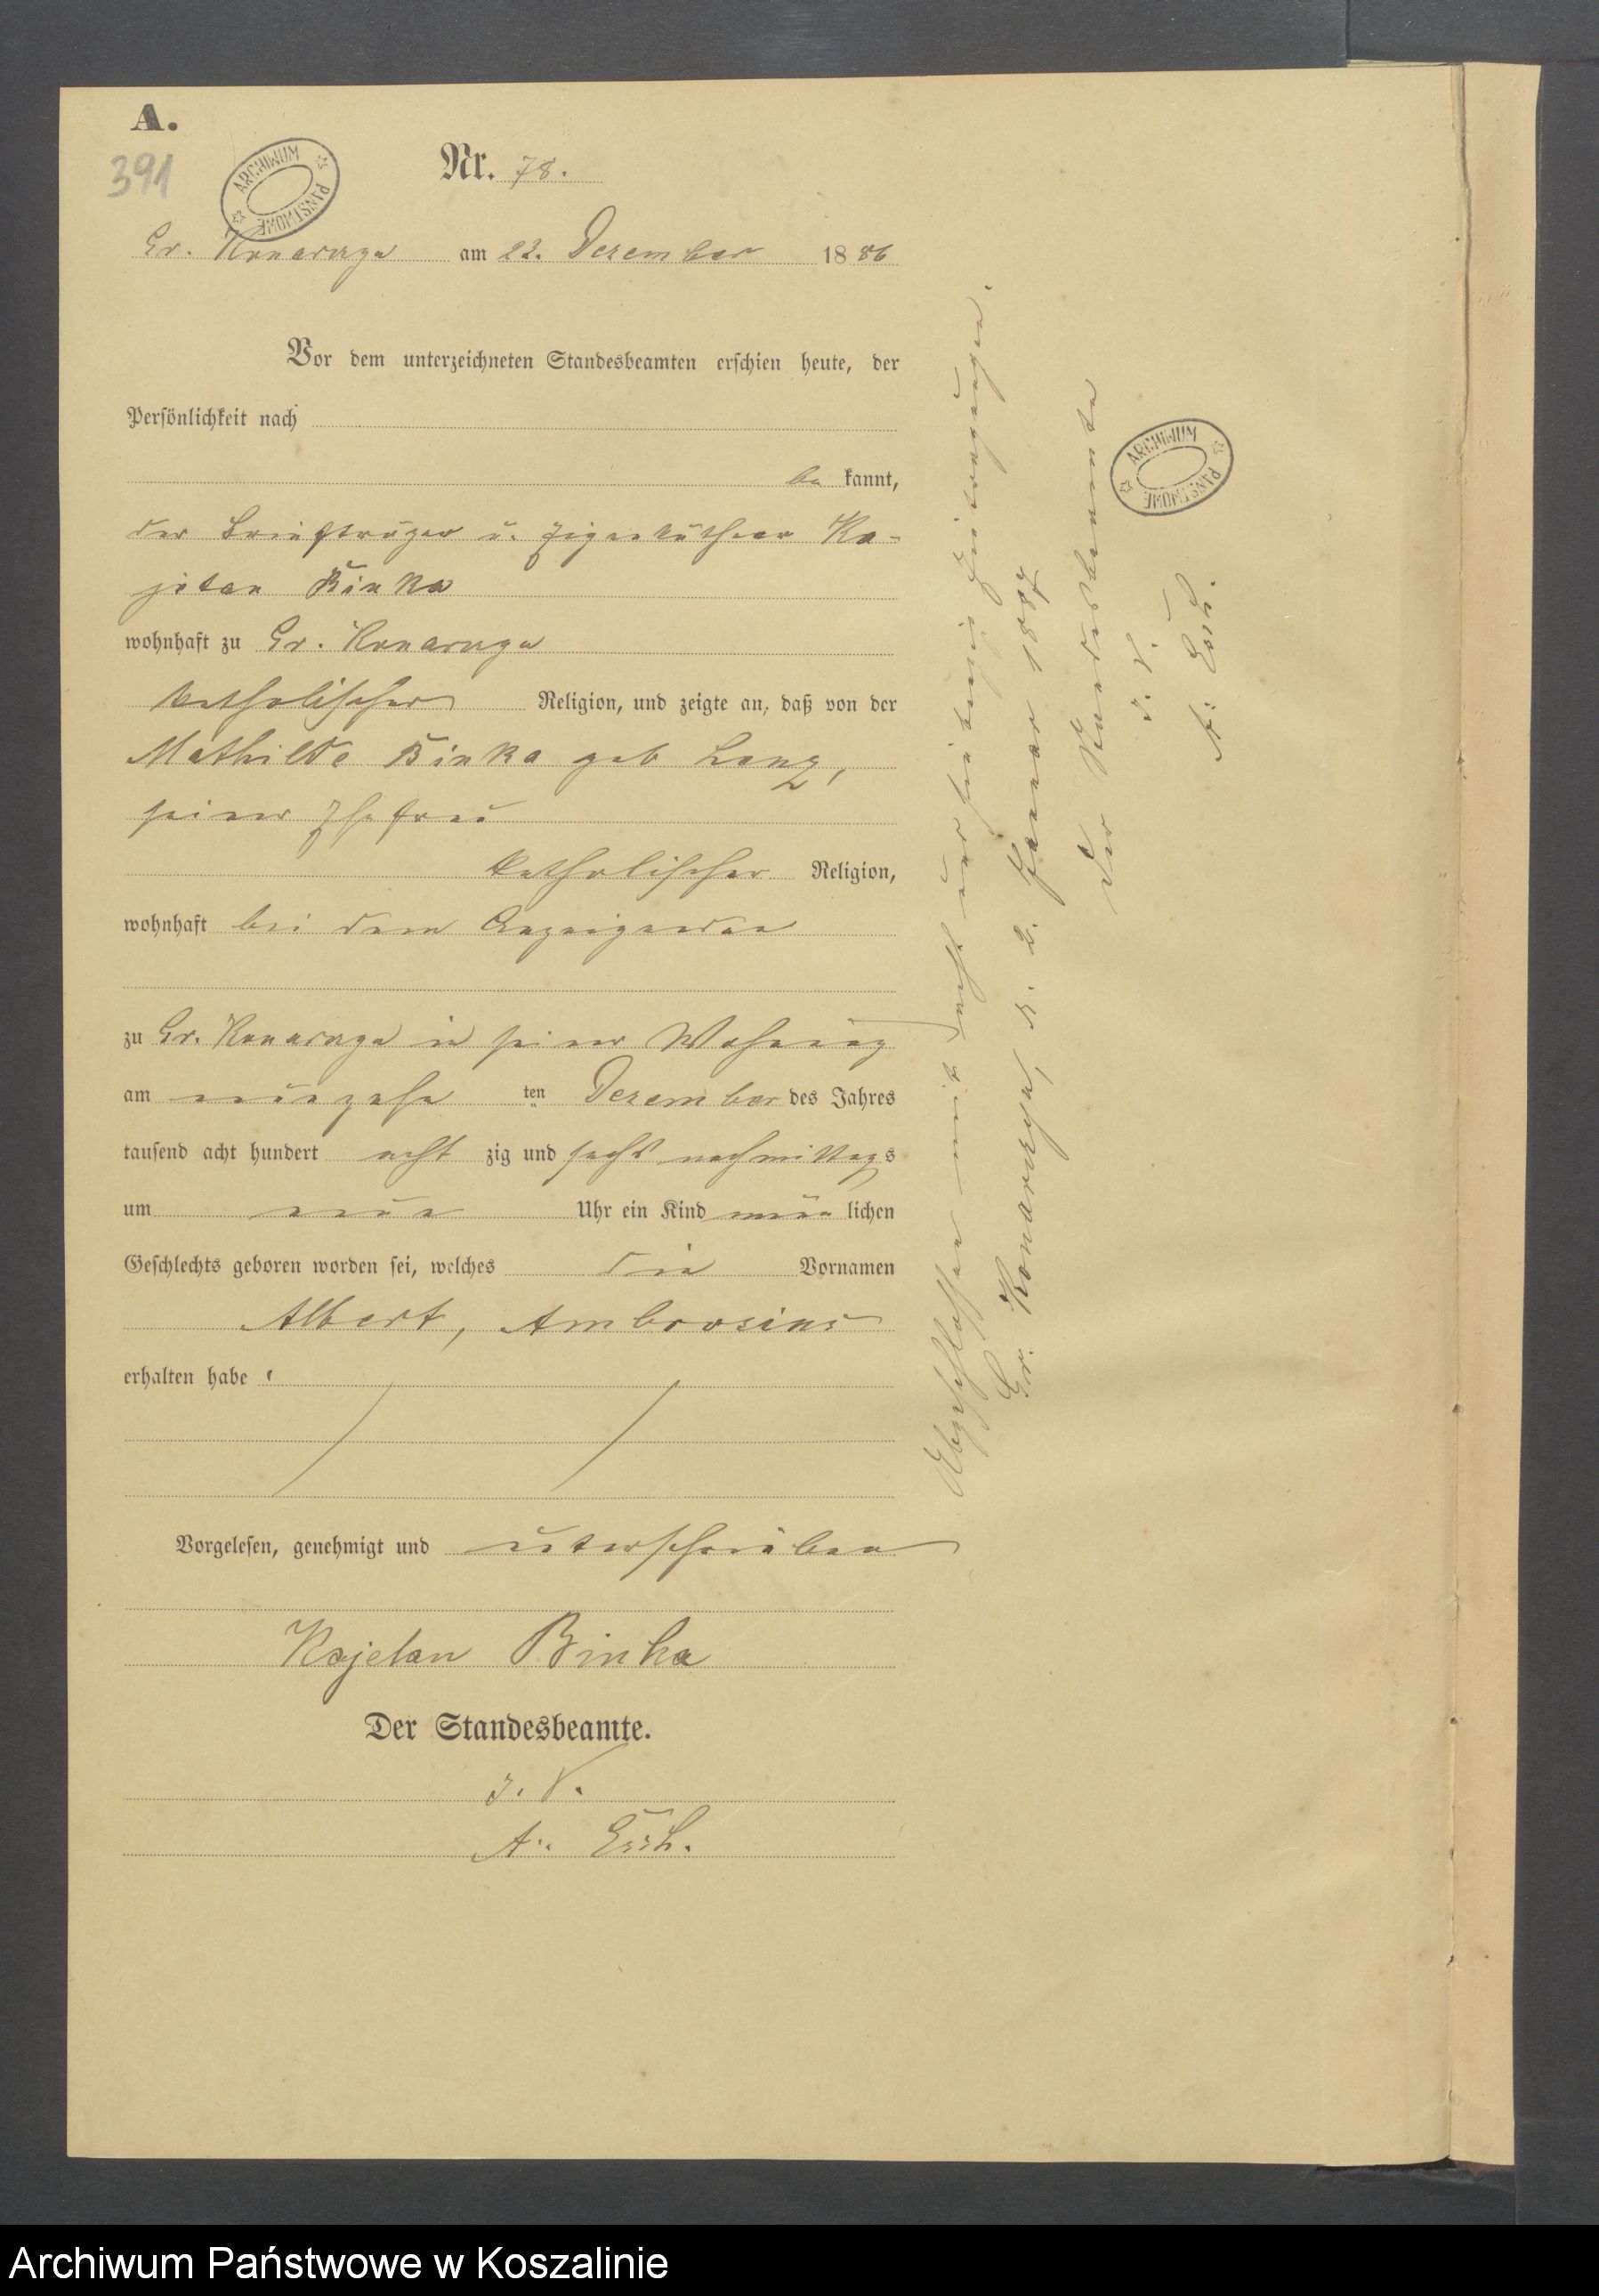 A.
391
ARCHIWUM PAŃSTWOWE
Nr. 78.
Gr. Konarczyn am 22. Dezember 1886
Vor dem unterzeichneten Standesbeamten erschien heute, der
Persönlichkeit nach
be kannt,
der Briefträger u. Eigenkäthner Ka-
jetan Binka
wohnhaft zu Gr. Konarczyn
katholischer Religion, und zeigte an, daß von der
Mathilde Binka geb Lang,
seiner Ehefrau
katholischer Religion,
wohnhaft bei dem Anzeigenden
zu Gr. Konarczyn in seiner Wohnung
am neunzehn ten Dezember des Jahres
tausend acht hundert acht zig und sechs nachmittags
um neun Uhr ein Kind män lichen
Geschlechts geboren worden sei, welches die Vornamen
Albert, Ambrosius
erhalten habe
Vorgelesen, genehmigt und unterschrieben
Kajetan Binka
Der Standesbeamte.
I. V.
A. Esch.
Abgeschlossen mit acht und siebenzig Eintragungen.
Gr. Konarczyn, d. 2. Januar 1887
Der Standesbeamte
I. V.
A. Esch.
ARCHIWUM PAŃSTWOWE
Archiwum Państwowe w Koszalinie